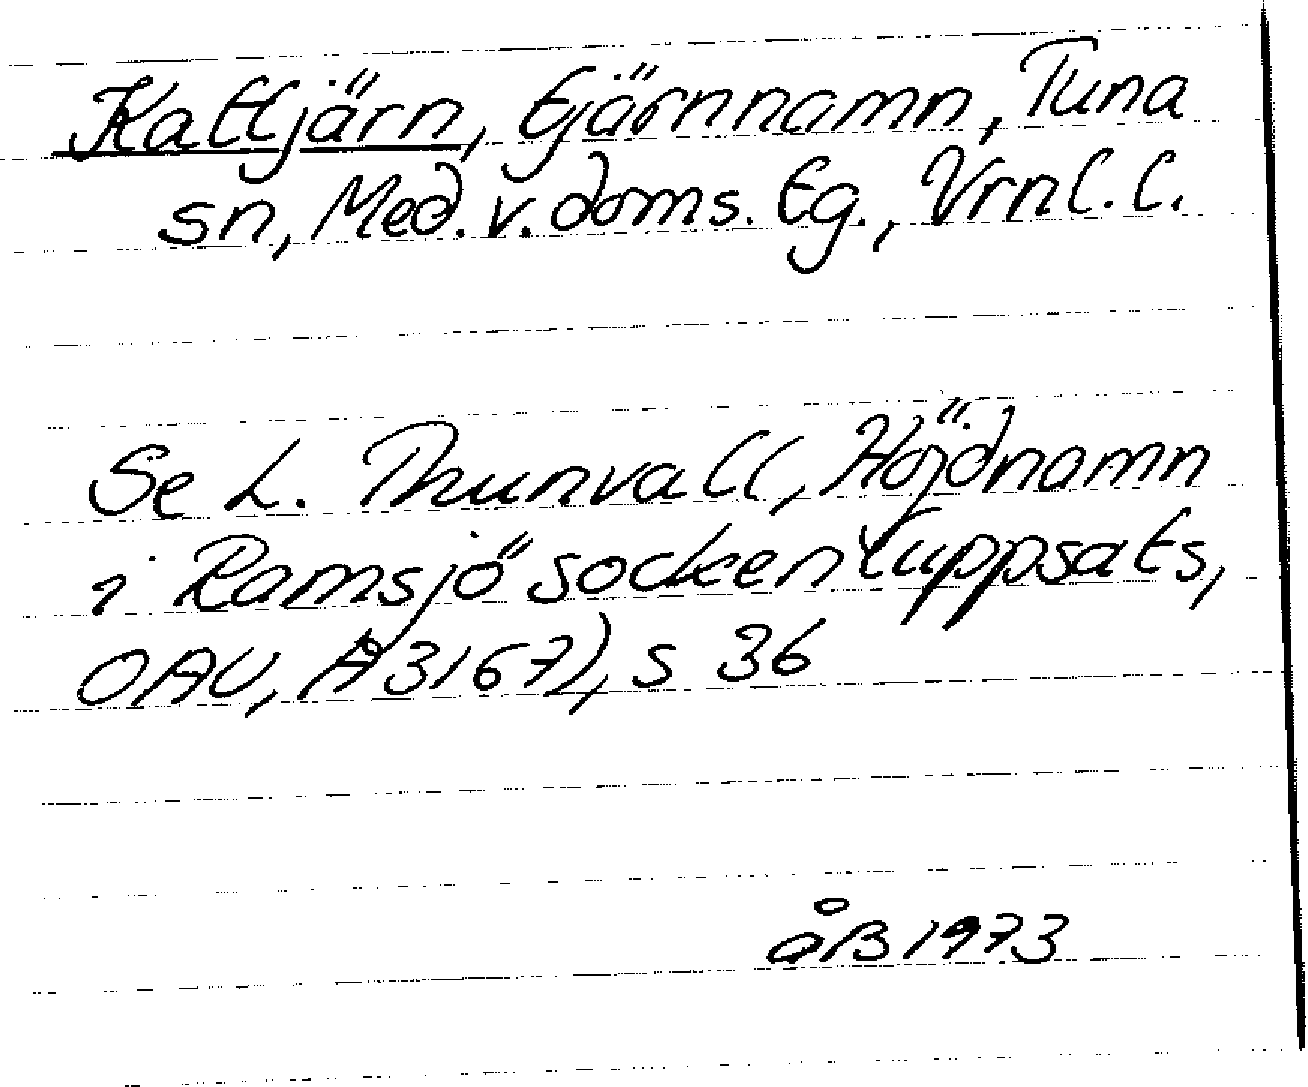 Kattjärn, tjärnnamn, Tuna
sn, Med. v. doms. tg., Vrnl. l.
Se L. Thunvall, Höjdnamn
i Ramsjö socken (uppsats,
OAU, Å3167), s 36
åB 1973